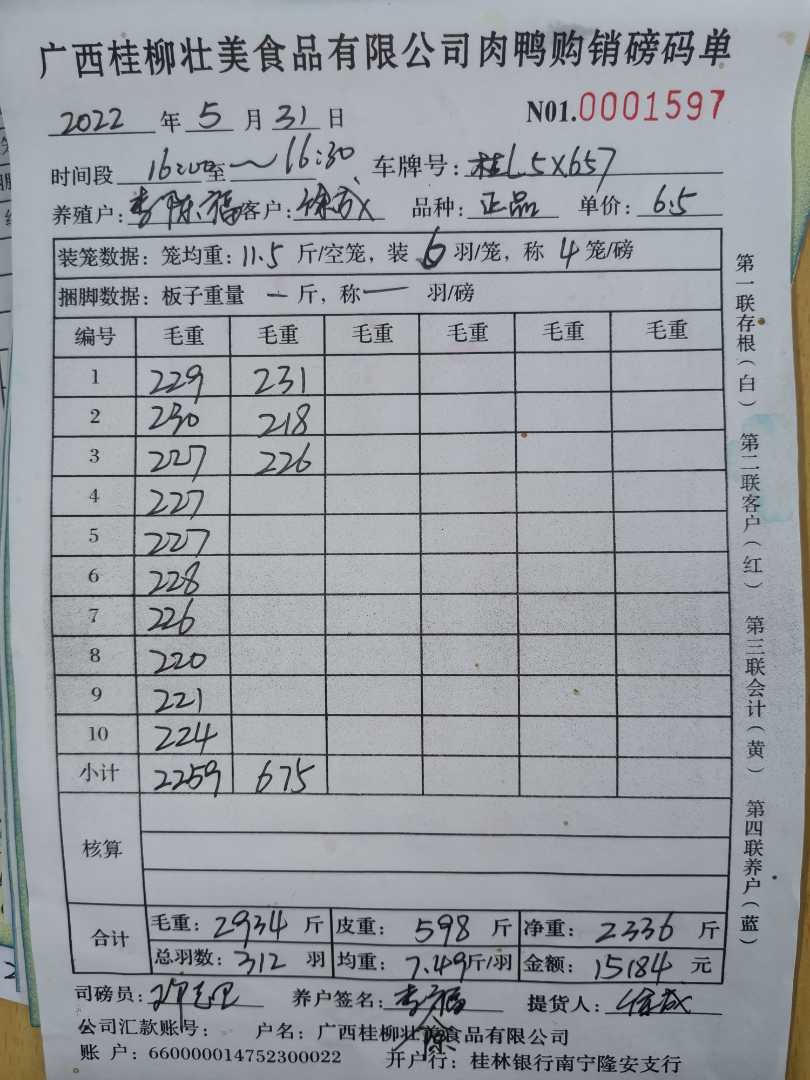 广西桂柳壮美食品有限公司肉鸭购销磅码单
2022 年 5 月 31 日 N01.0001597
时间段 16:00 至 ~16:30 车牌号: 桂L5X657
养殖户: 客户: 品种: 正品 单价: 6.5
装笼数据: 笼均重: 11.5 斤/空笼, 装 6 羽/笼, 称 4 笼/磅
捆脚数据: 板子重量 一 斤, 称 一 羽/磅
编号 毛重 毛重 毛重 毛重 毛重 毛重
1 229 231
2 230 218
3 227 226
4 227
5 227
6 228
7 226
8 220
9 221
10 224
小计 2259 675
核算
合计 毛重: 2934 斤 皮重: 598 斤 净重: 2336 斤
总羽数: 312 羽 均重: 7.49 斤/羽 金额: 15184 元
司磅员: 养户签名: 提货人:
公司汇款账号: 户名: 广西桂柳壮美食品有限公司
账 户: 660000014752300022 开户行: 桂林银行南宁隆安支行
第一联存根(白) 第二联客户(红) 第三联会计(黄) 第四联养户(蓝)